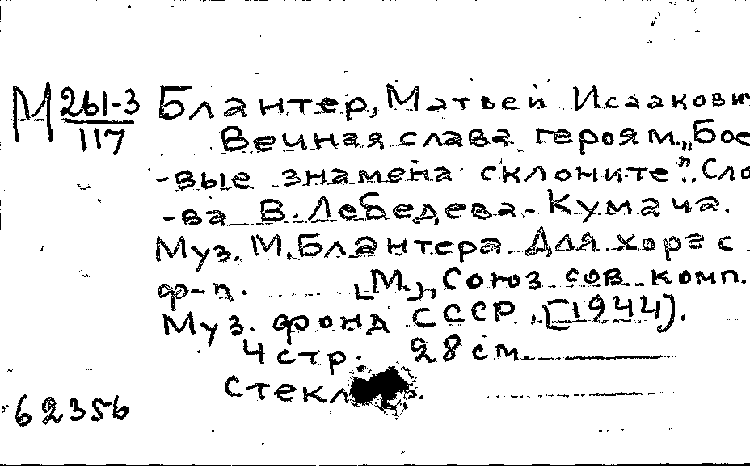 М 261-3 Блантер, Матвей Исаакови
117 Вечная слава героям. „Бое
-вые знамена склоните". Сло
-ва В. Лебедева-Кумача.
Муз. М. Блантера. Для хора с
ф-п. [М.], Союз сов. комп.
Муз. фонд СССР, [1944].
4 стр. 28 см.
62356